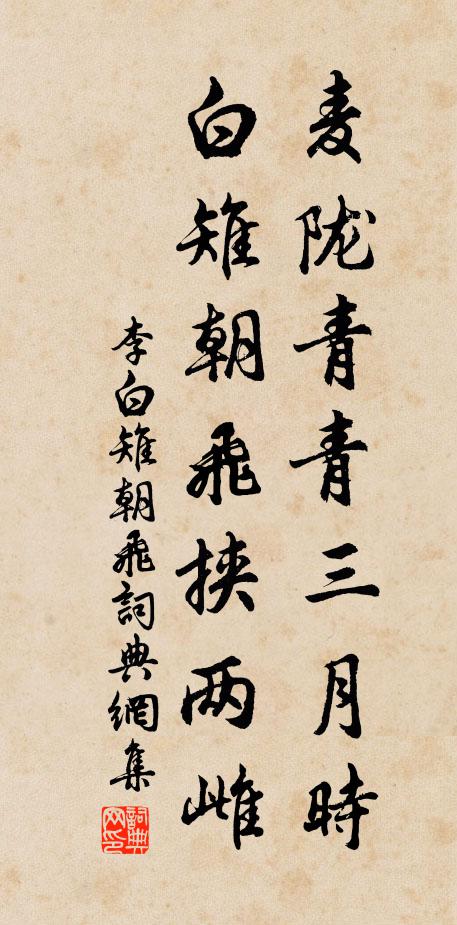 麦陇青青三月時
白雉朝飛挾两雌
李白雉朝飛詞典網集
詞典
网印